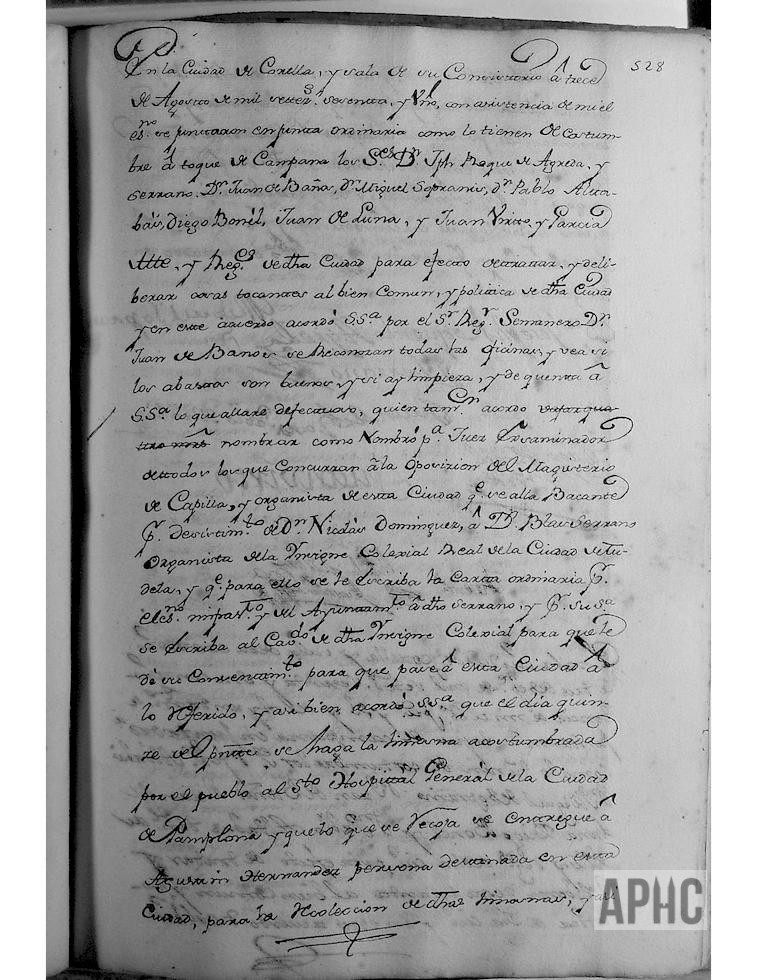 528
En la Ciudad de Corella, y sala de su Consistorio â trece
de Agosto de mil settez.s sesenta, y Vno, con asistencia de mi el
es.no se juntaron en junta ordinaria como lo tienen de Costum-
bre â toque de Campana los S.res D.n Jph Roque de Agreda, y
Serrano, D.n Juan de Baños, D.n Miguel Sopranis, D.n Pablo Alca-
Diego Bonel, Juan de Luna, y Juan Virto, y Garcia
Altte, y Reg.es de dha Ciudad para efecto de tratar, y deli-
berar cosas tocantes al bien Comun, y politica de dha Ciudad
y en este acuerdo acordó S.S.a por el S.r Reg.r Semanero D.n
Juan de Baños se Reconozcan todas las oficinas, y vea si
los abastos son buenos, y si ay limpieza, y de quenta â
S.S.a lo que allare defectuoso, quien tam.en acordo
nombrar como Nombró p.a Juez Exsaminador
de todos los que Concurran â la Oposizion del Magisterio
de Capilla, y organista de esta Ciudad q.e se alla Bacante
p.r desistim.to de D.n Nicolás Dominguez, â D.n Blas Serrano
Organista de la Ynsigne Colexial Real de la Ciudad de Tu-
dela, y q.e para ello se le Escriba la Carta ordinaria p.r
el es.no infras.to y del Ayuntam.to â dho Serrano, y p.r su S.a
se Escriba al Cav.do de dha Ynsigne Colexial para que le
dé su Consentim.to para que pase â esta Ciudad â
lo referido, y asi bien acordó S.S.a que el dia quin-
ze del pnte se haga la limosna acostumbrada
por el pueblo al S.to Hospital General de la Ciudad
de Pamplona y que lo que se Recoja se entregue â
Agustin Hernandez persona destinada en esta
Ciudad, para la Recoleccion de dhas limosnas, y asi
APHC